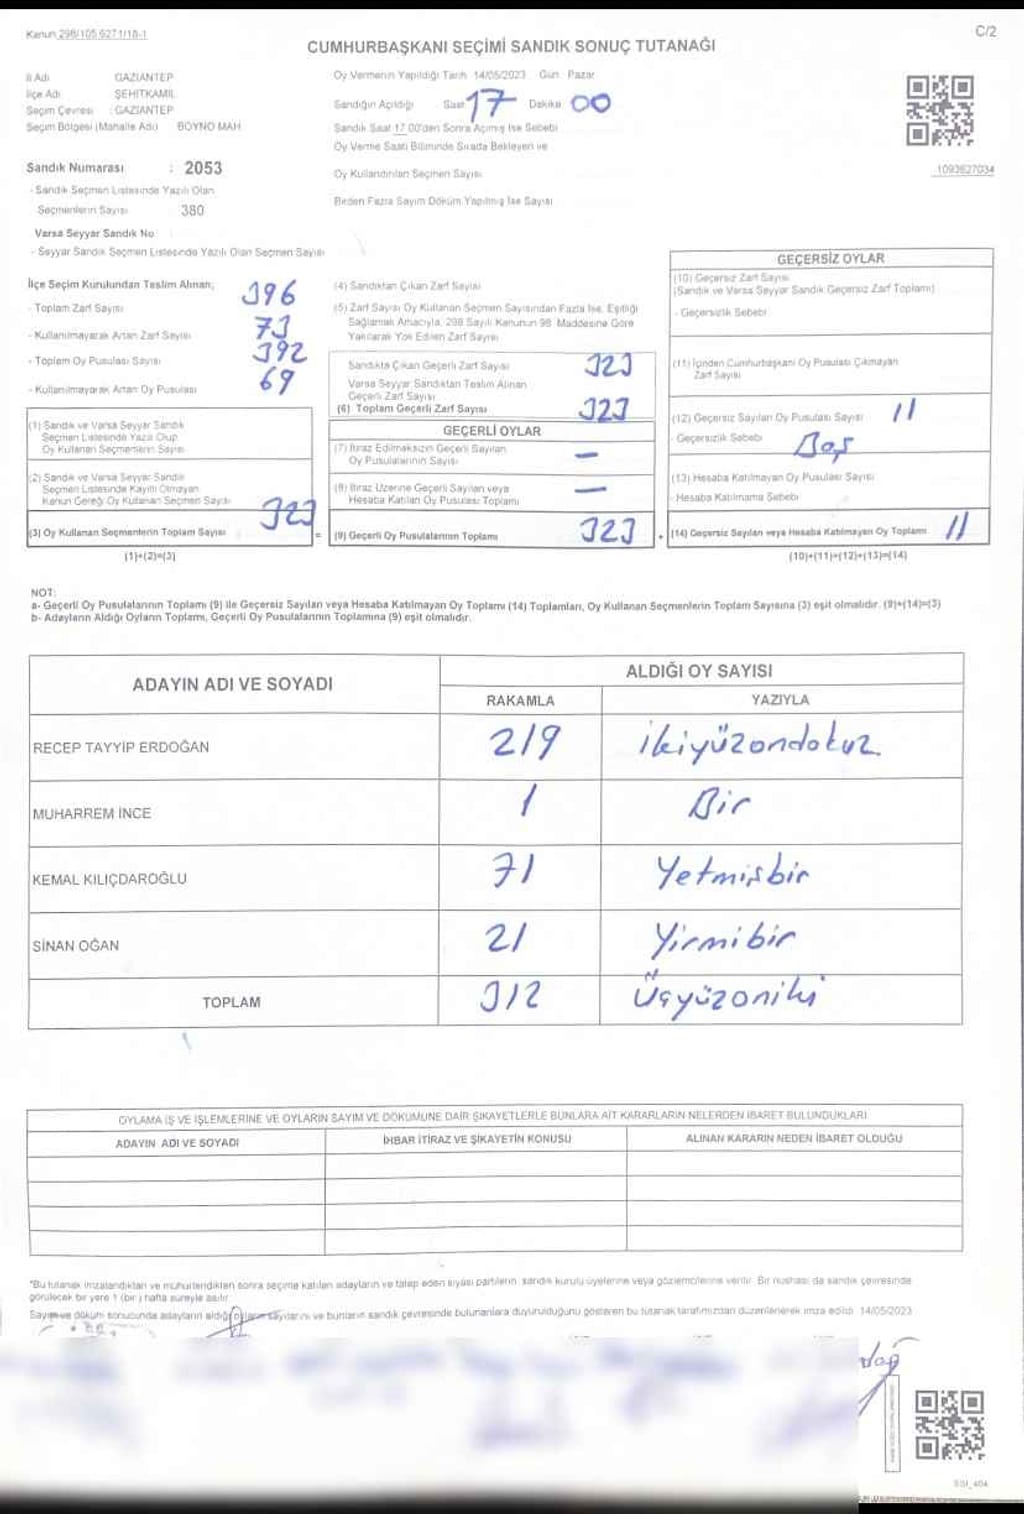 Kanun 298/105 6271/18-1
C/2
CUMHURBAŞKANI SEÇİMİ SANDIK SONUÇ TUTANAĞI
İl Adı GAZİANTEP
İlçe Adı ŞEHİTKAMİL
Seçim Çevresi : GAZİANTEP
Seçim Bölgesi (Mahalle Adı) BOYNO MAH.
Oy Vermenin Yapıldığı Tarih 14/05/2023 Gün: Pazar
Sandığın Açıldığı Saat 17 Dakika 00
Sandık Saat 17 00'den Sonra Açılmış İse Sebebi
Oy Verme Saati Bitiminde Sırada Bekleyen ve
Oy Kullandırılan Seçmen Sayısı
Birden Fazla Sayım Döküm Yapılmış İse Sayısı
1093627034
Sandık Numarası : 2053
- Sandık Seçmen Listesinde Yazılı Olan
Seçmenlerin Sayısı 380
Varsa Seyyar Sandık No
- Seyyar Sandık Seçmen Listesinde Yazılı Olan Seçmen Sayısı
İlçe Seçim Kurulundan Teslim Alınan;
- Toplam Zarf Sayısı 396
- Kullanılmayarak Artan Zarf Sayısı 73
- Toplam Oy Pusulası Sayısı 392
- Kullanılmayarak Artan Oy Pusulası 69
(1) Sandık ve Varsa Seyyar Sandık
Seçmen Listesinde Yazılı Olup
Oy Kullanan Seçmenlerin Sayısı
(2) Sandık ve Varsa Seyyar Sandık
Seçmen Listesinde Kayıtlı Olmayan
Kanun Gereği Oy Kullanan Seçmen Sayısı
(3) Oy Kullanan Seçmenlerin Toplam Sayısı 323
(1)+(2)=(3)
(4) Sandıktan Çıkan Zarf Sayısı
(5) Zarf Sayısı Oy Kullanan Seçmen Sayısından Fazla İse, Eşitliği
Sağlamak Amacıyla, 298 Sayılı Kanunun 98. Maddesine Göre
Yakılarak Yok Edilen Zarf Sayısı
Sandıkta Çıkan Geçerli Zarf Sayısı 323
Varsa Seyyar Sandıktan Teslim Alınan
Geçerli Zarf Sayısı
(6) Toplam Geçerli Zarf Sayısı 323
GEÇERLİ OYLAR
(7) İtiraz Edilmeksizin Geçerli Sayılan
Oy Pusulalarının Sayısı —
(8) İtiraz Üzerine Geçerli Sayılan veya
Hesaba Katılan Oy Pusulası Toplamı —
= (9) Geçerli Oy Pusulalarının Toplamı 323
GEÇERSİZ OYLAR
(10) Geçersiz Zarf Sayısı
(Sandık ve Varsa Seyyar Sandık Geçersiz Zarf Toplamı)
- Geçersizlik Sebebi
(11) İçinden Cumhurbaşkanı Oy Pusulası Çıkmayan
Zarf Sayısı
(12) Geçersiz Sayılan Oy Pusulası Sayısı 11
- Geçersizlik Sebebi Boş
(13) Hesaba Katılmayan Oy Pusulası Sayısı
- Hesaba Katılmama Sebebi
+ (14) Geçersiz Sayılan veya Hesaba Katılmayan Oy Toplamı 11
(10)+(11)+(12)+(13)=(14)
NOT:
a- Geçerli Oy Pusulalarının Toplamı (9) ile Geçersiz Sayılan veya Hesaba Katılmayan Oy Toplamı (14) Toplamları, Oy Kullanan Seçmenlerin Toplam Sayısına (3) eşit olmalıdır. (9)+(14)=(3)
b- Adayların Aldığı Oyların Toplamı, Geçerli Oy Pusulalarının Toplamına (9) eşit olmalıdır.
ADAYIN ADI VE SOYADI ALDIĞI OY SAYISI
RAKAMLA YAZIYLA
RECEP TAYYİP ERDOĞAN 219 ikiyüzondokuz
MUHARREM İNCE 1 Bir
KEMAL KILIÇDAROĞLU 71 Yetmişbir
SİNAN OĞAN 21 Yirmibir
TOPLAM 312 Üçyüzoniki
OYLAMA İŞ VE İŞLEMLERİNE VE OYLARIN SAYIM VE DÖKÜMÜNE DAİR ŞİKAYETLERLE BUNLARA AİT KARARLARIN NELERDEN İBARET BULUNDUKLARI
ADAYIN ADI VE SOYADI İHBAR İTİRAZ VE ŞİKAYETİN KONUSU ALINAN KARARIN NEDEN İBARET OLDUĞU
*Bu tutanak imzalandıktan ve mühürlendikten sonra seçime katılan adayların ve talep eden siyasi partilerin sandık kurulu üyelerine veya gözlemcilerine verilir. Bir nüshası da sandık çevresinde
görülecek bir yere 1 (bir) hafta süreyle asılır.
Sayım ve döküm sonucunda adayların aldığı oyların sayılarını ve bunların sandık çevresinde bulunanlara duyurulduğunu gösteren bu tutanak tarafımızdan düzenlenerek imza edildi. 14/05/2023